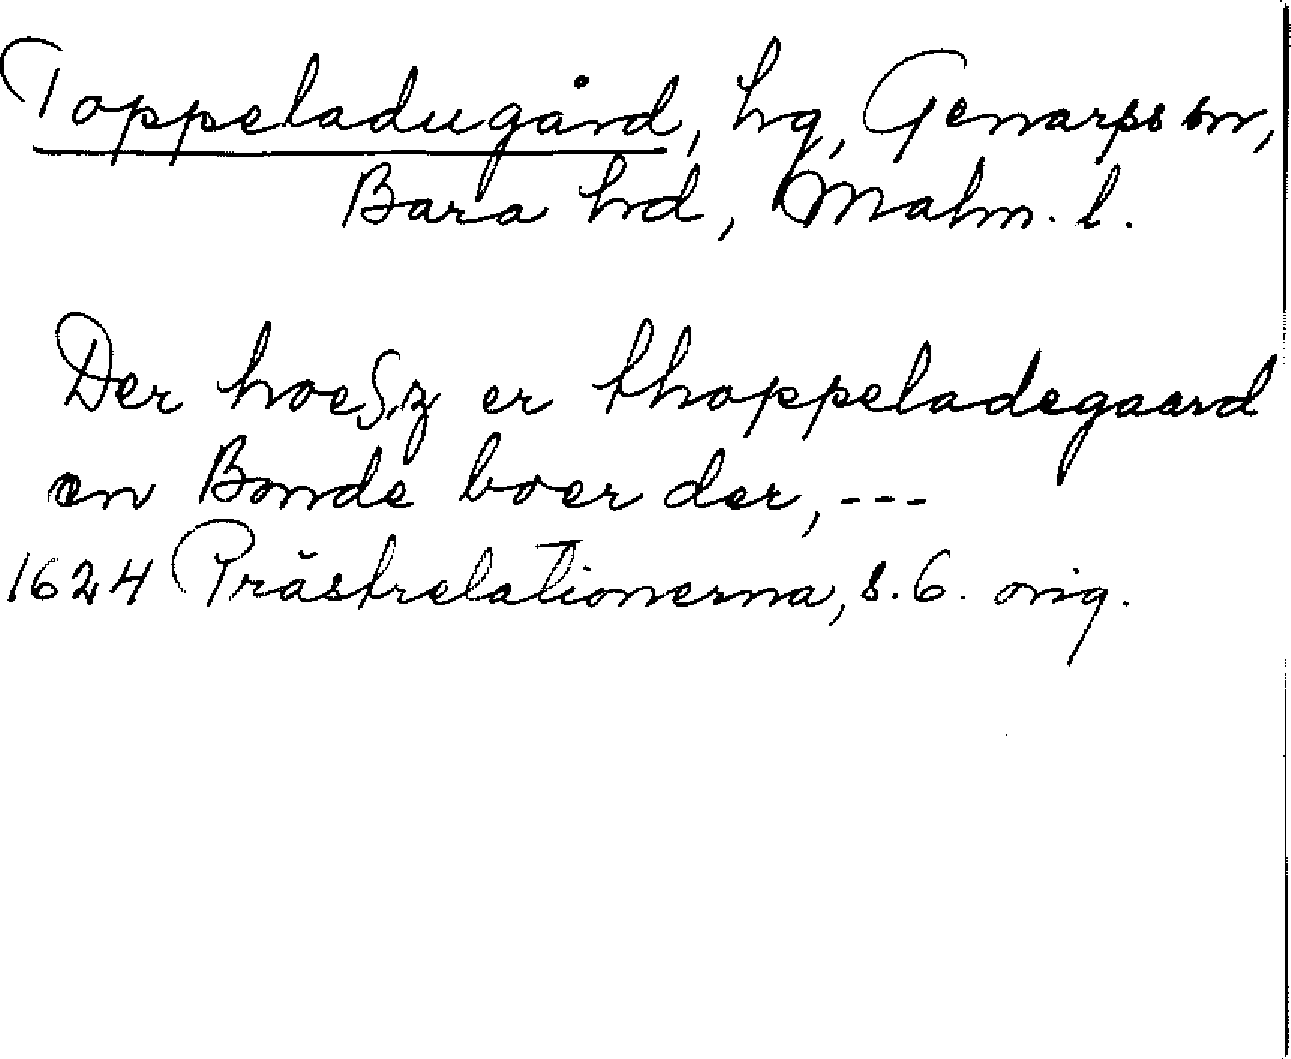 Toppeladugård, hg, Genarps sn,
Bara hd, Malm. l.
Der hoeſz er thoppeladegaard
en Bonde boer der, ---
1624 Prästrelationerna, s. 6. orig.